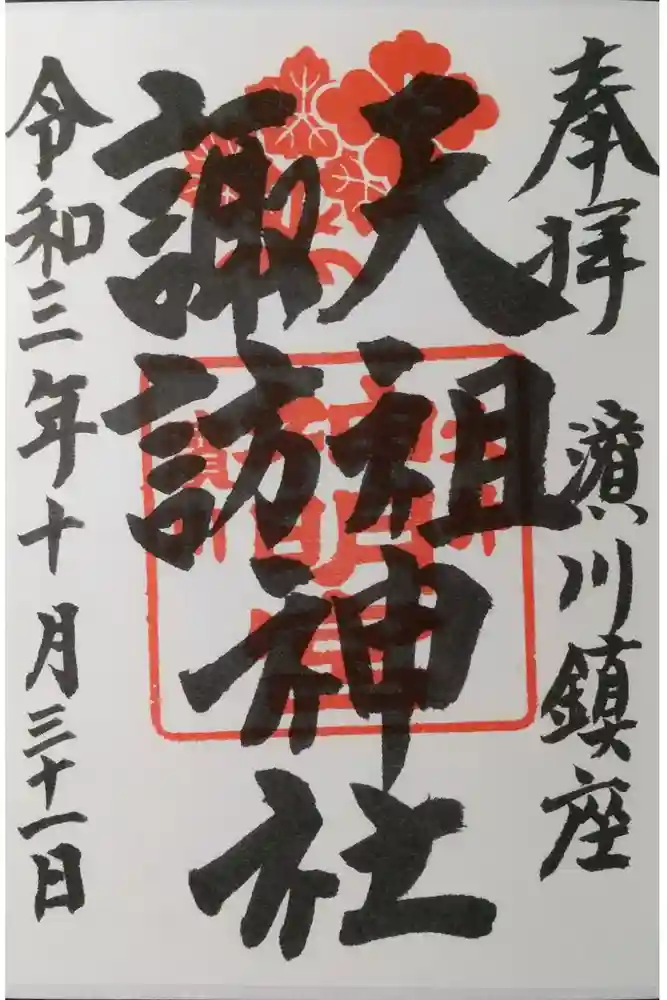 奉拝 濱川鎮座
天祖
諏訪
神社
令和三年十月三十一日
神明宮